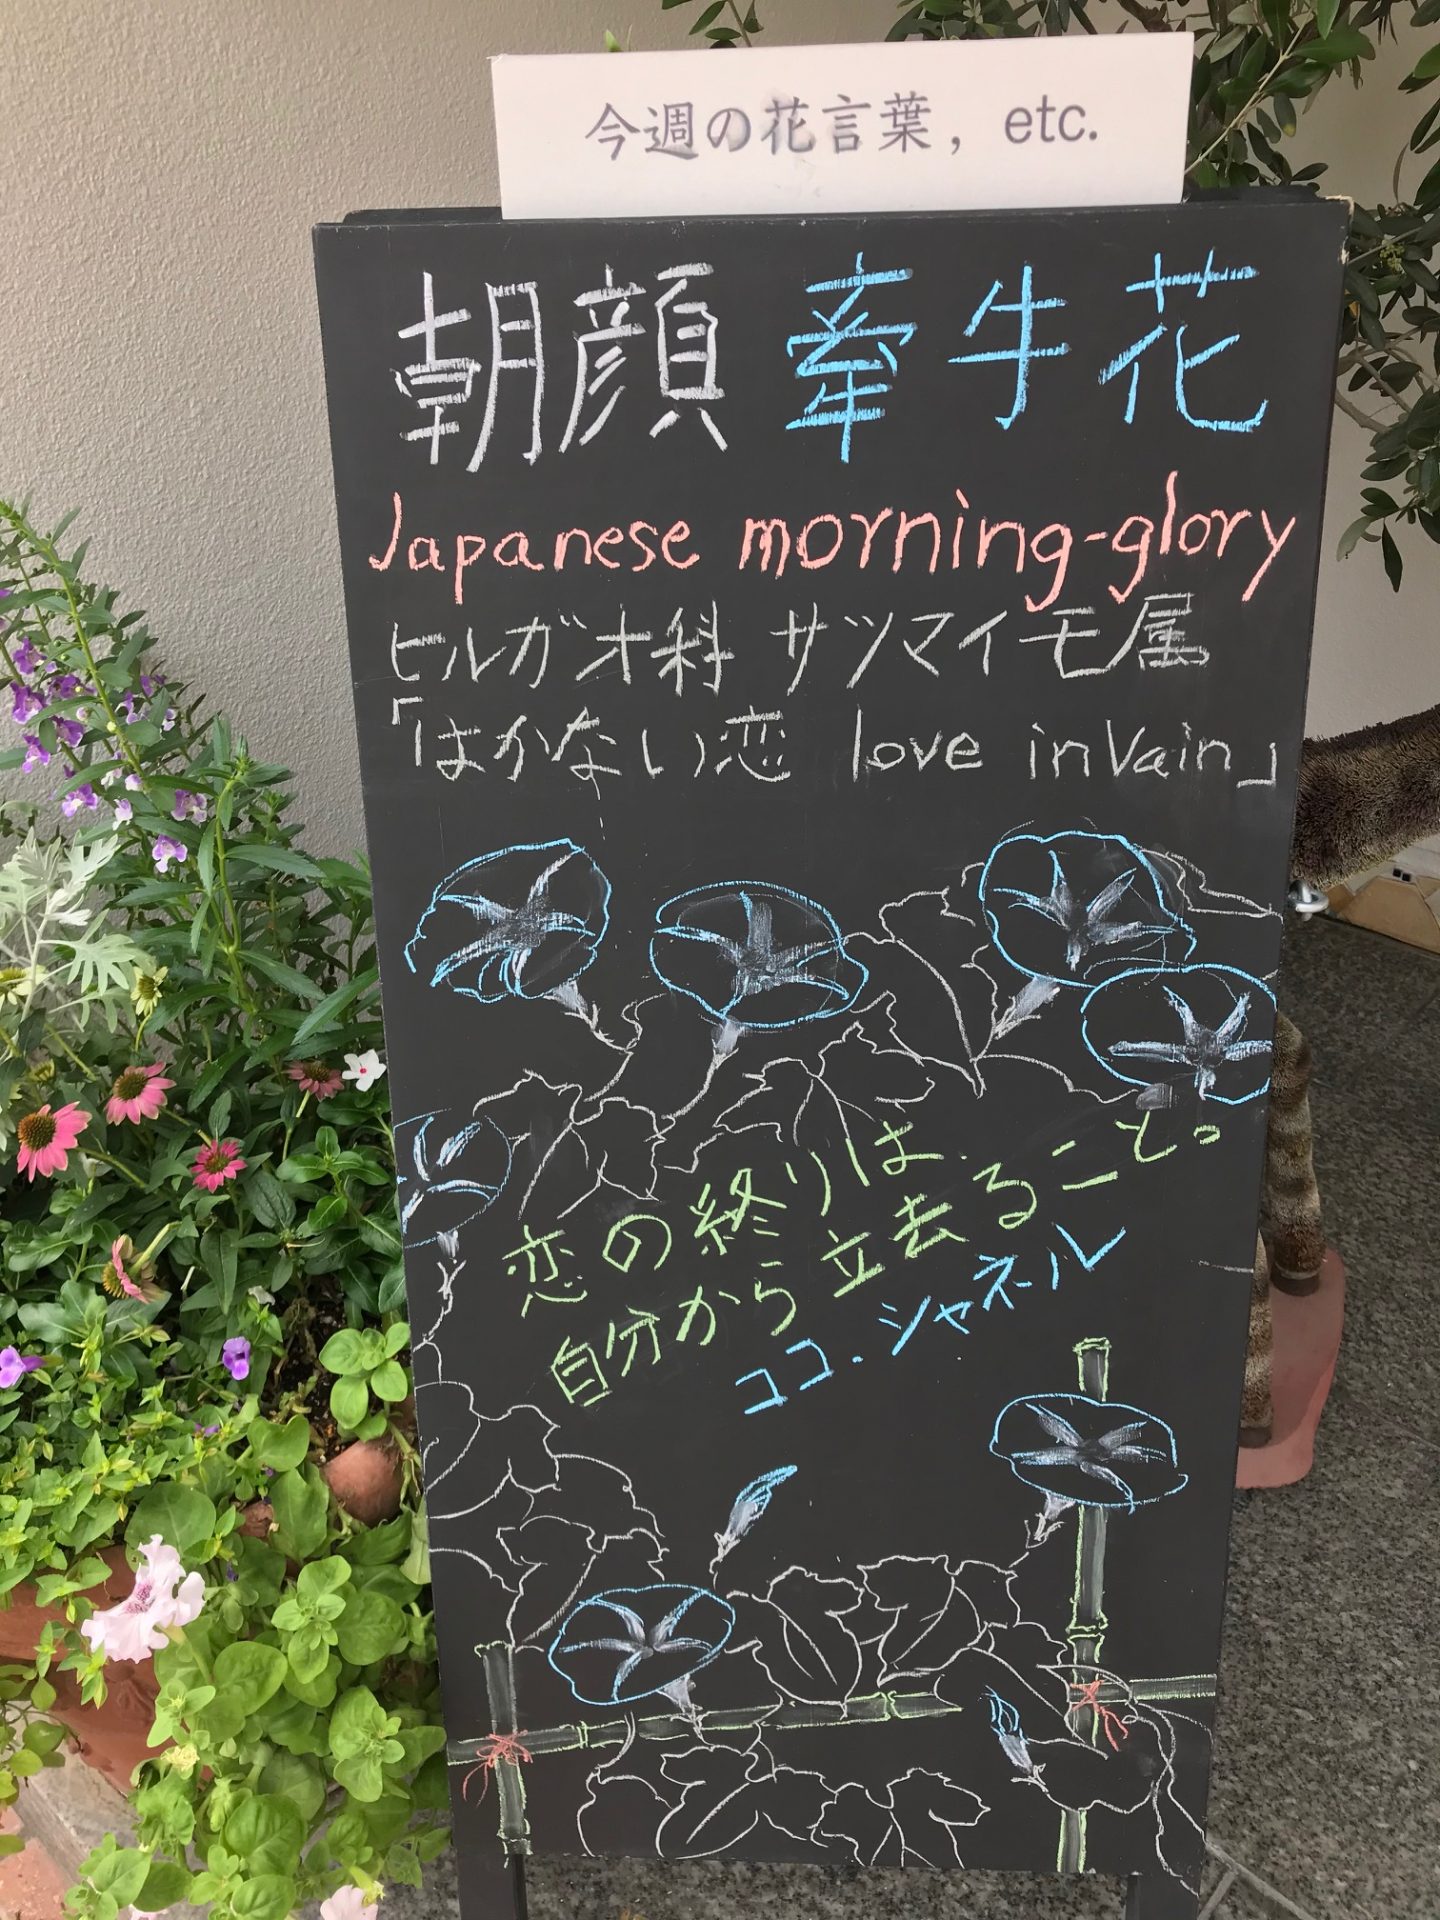 今週の花言葉, etc.
朝顔 牽牛花
Japanese morning-glory
ヒルガオ科 サツマイモ属
「はかない恋 love in Vain」
恋の終りは
自分から立去ること。
ココ・シャネル